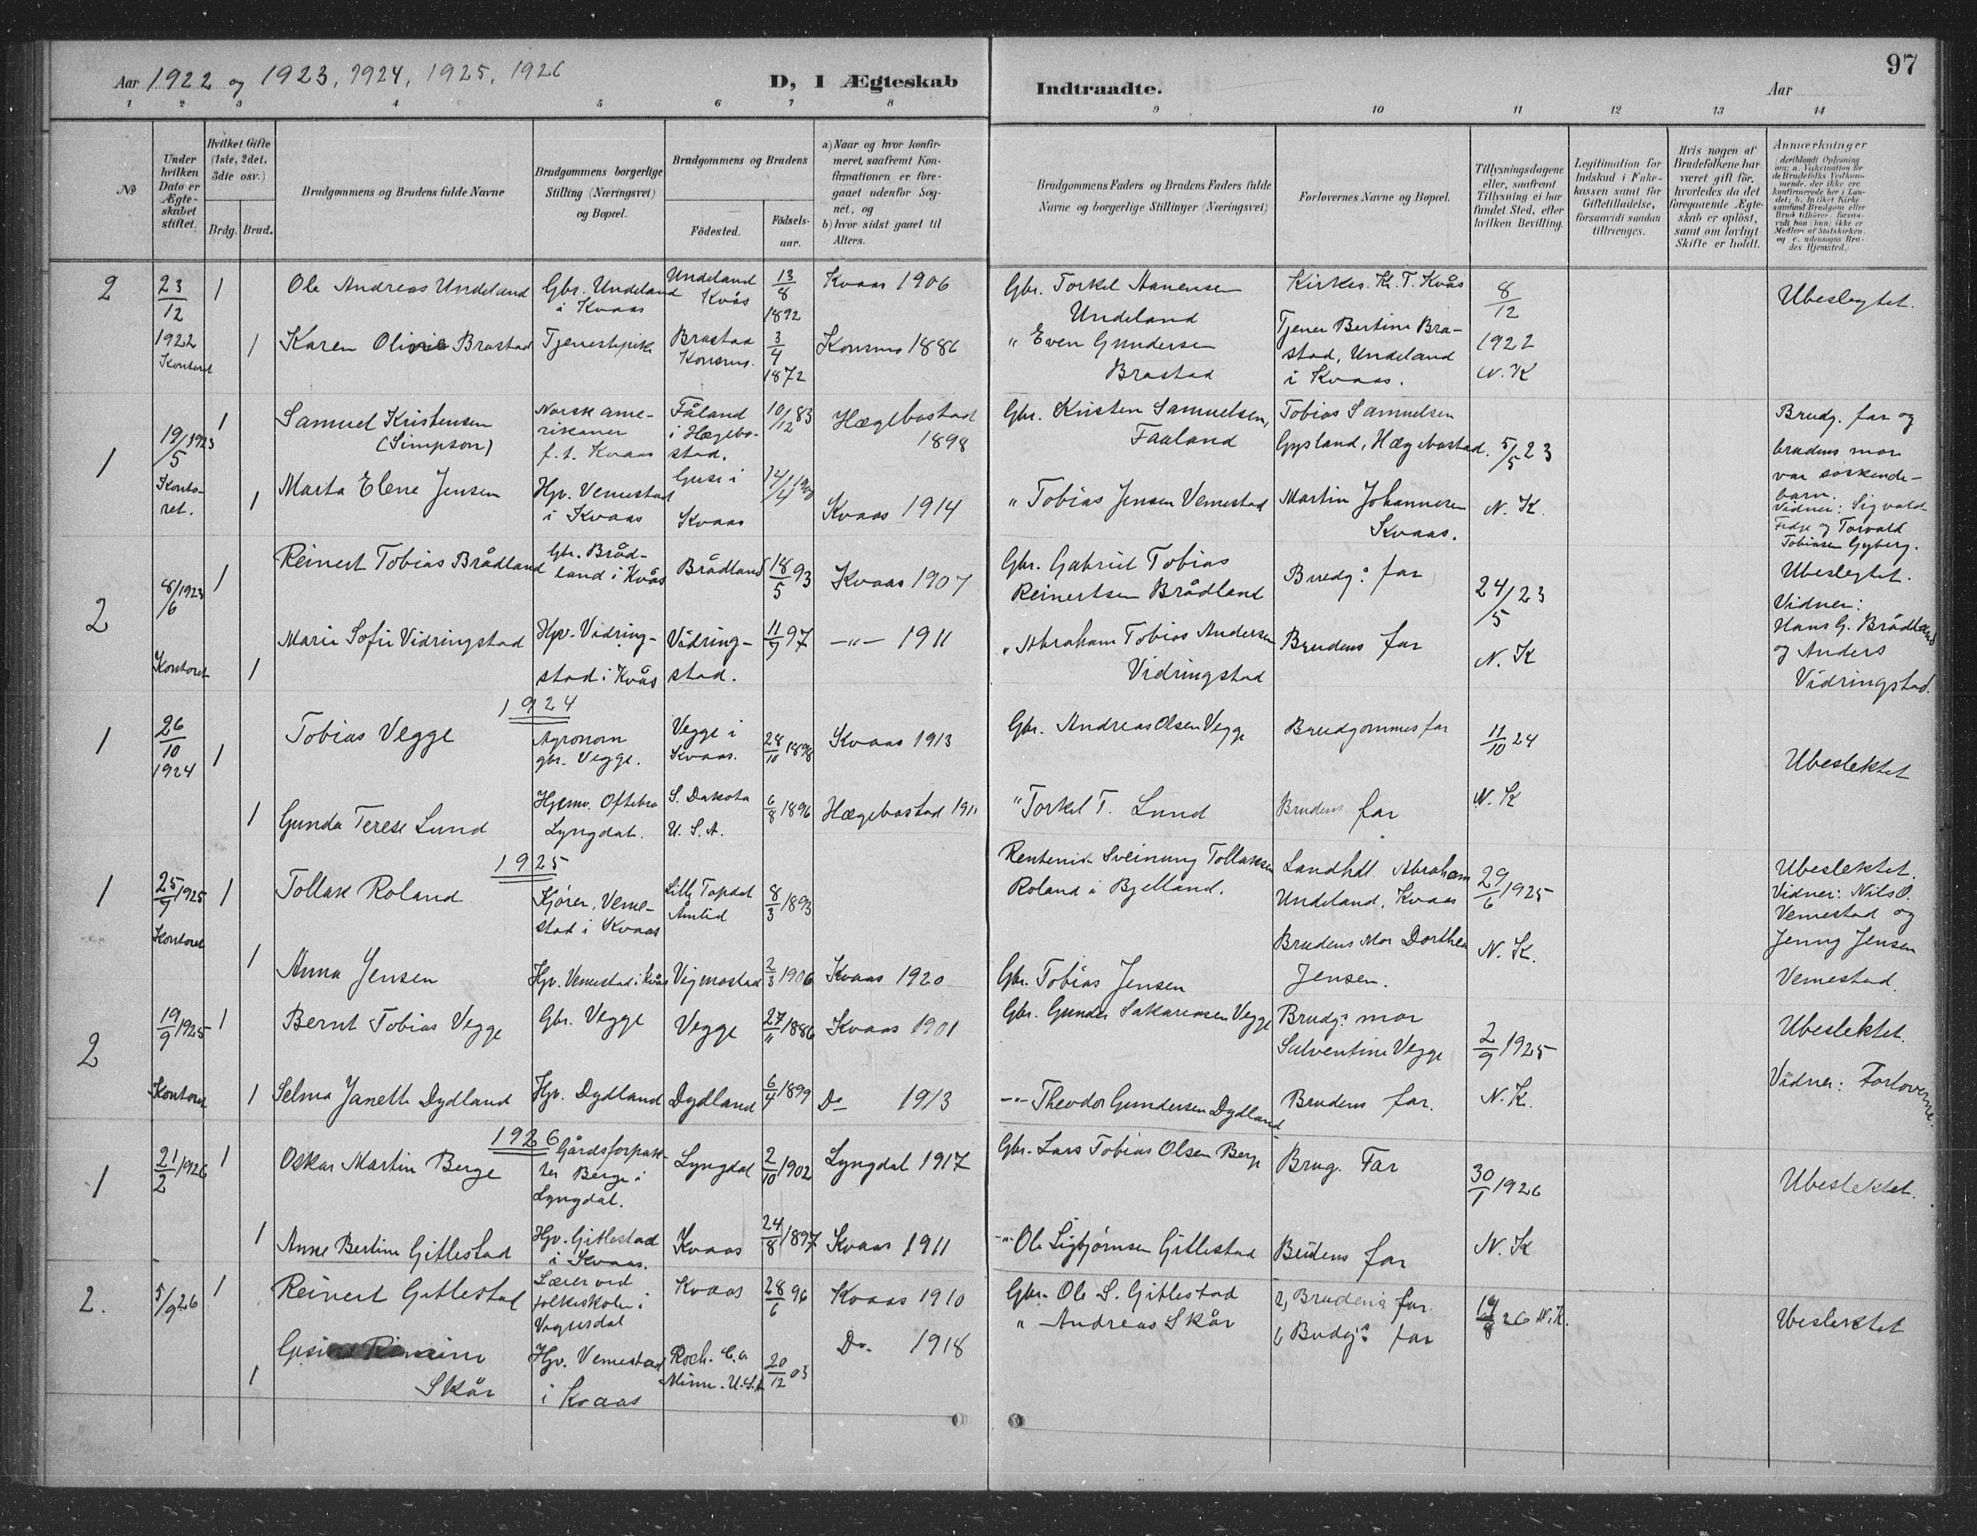 Aar 1922 og 1923, 1924, 1925, 1926 D, 1 Ægteskab Indtraadte. Aar 97
1 2 3 4 5 6 7 8 9 10 11 12 13 14
No
Under hvilken Dato er Ægteskabet stiftet.
Hvilket Gifte (1ste, 2det, 3die osv.)
Brdg. Brud.
Brudgommens og Brudens fulde Navne
Brudgommens borgerlige Stilling (Næringsvei) og Bopæl.
Brudgommens og Brudens
Fødested. Fødselsaar.
a) Naar og hvor konfirmeret, saafremt Konfirmationen er foregaaet udenfor Sognet, og
b) hvor sidst gaaet til Alters.
Brudgommens Faders og Brudens Faders fulde Navne og borgerlige Stillinger (Næringsvei)
Forlovernes Navne og Bopæl.
Tillysningsdagene eller, saafremt Tillysning ei har fundet Sted, efter hvilken Bevilling.
Legitimation for Indskud i Enkekassen samt for Giftetilladelse, forsaavidt saadan tiltrænges.
Hvis nogen af Brudefolkene har været gift før, hvorledes da det foregaaende Ægteskab er opløst, samt om lovligt Skifte er holdt.
Anmærkninger
2 23/12 1922 Kontoret
1 Ole Andreas Undeland Gbr. Undeland i Kvaas Undeland Kvås 13/8 1892 Kvaas 1906 Gbr. Torkel Undeland Kirkes. Kr. T. Kvås 8/12 1922 N. K Ubeslegtet.
1 Karen Olivie Brastad Tjenestepike Brastad Konsmo. 3/4 1872 Konsmo 1886 " Even Gundersen Brastad Tjener Bertine Brastad, Undeland i Kvaas.
1 19/5 1923 Kontoret.
1 Samuel Kristensen (Simpson) Norsk amerikaner f. t. Kvaas Fåland i Hægebostad. 10/12 83 Hægebostad 1898 Gbr. Kristen Samuelsen, Faaland Tobias Samuelsen Gysland, Hægebostad. 5/5 23 N. K. Brudg. far og brudens mor var søskendebarn. Vidner: Sigvald Fedje og Torvald Tobiasen Gyberg.
1 Marta Elene Jensen Hjv. Vemestad i Kvaas i Kvaas 14/4 1900 Kvaas 1914 " Tobias Jensen Vemestad Martin Johannesen Kvaas.
2 8/6 1923 Kontoret
1 Reinert Tobias Brådland Gbr. Brådland i Kvås Brådland 18/5 93 Kvaas 1907 Gbr. Gabriel Tobias Reinertsen Brådland Brudg: far 24/5 23 N. K Ubeslegtet. Vidner: Hans G. Brådland og Anders Vidringstad.
1 Marie Sofie Vidringstad Hjv. Vidringstad i Kvås Vidringstad. 11/9 97 —"— 1911 " Abraham Tobias Andersen Vidringstad Brudens far
1924
1 26/10 1924
1 Tobias Vegge Agronom gbr. Vegge. Vegge i Kvaas. 28/10 1898 Kvaas 1913 Gbr. Andreas Olsen Vegge Brudgommes far 11/10 24 N. K Ubeslektet
1 Gunda Terese Lund Hjemv. Oftebro Lyngdal. S. Dakota U. S. A. 6/8 1896 Hægebostad 1911 " Torkel T. Lund Brudens far
1925
1 25/7 1925 Kontoret
1 Tollak Roland Kjører, Vemestad i Kvaas Lille Topdal Åmlid 8/3 1893 Rentenist Sveinung Tollaksen Roland i Bjelland. Landhdl. Abraham Undeland, Kvaas 29/6 1925 N. K. Ubeslektet. Vidner: Nils O. Vemestad og Jenny Jensen Vemestad.
1 Anna Jensen Hjv. Vemestad i Kvås Vigmostad 2/3 1906 Kvaas 1920 Gbr. Tobias Jensen Brudens Mor Dorthea Jensen.
2 19/9 1925 Kontoret
1 Bernt Tobias Vegge Gbr. Vegge Vegge 27/11 1886 Kvaas 1901 Gbr. Gunder Sakariasen Vegge Brudg: mor Salventine Vegge 2/9 1925 N. K. Ubeslektet. Vidner: Forloverne.
1 Selma Janette Dydland Hjv. Dydland Dydland 6/4 1899 Do 1913 —"— Theodor Gundersen Dydland Brudens far.
1926
1 21/2 1926
1 Oskar Martin Berge Gårdsforpakter Berge i Lyngdal. Lyngdal 2/10 1902 Lyngdal 1917 Gbr. Lars Tobias Olsen Berge Brug. Far 30/1 1926 N. K Ubeslektet.
1 Anne Bertine Gitlestad Hjv. Gitlestad i Kvaas. Kvaas 24/8 1897 Kvaas 1911 —"— Ole Sigbjørnsen Gitlestad Brudens far
2. 5/9 26
1 Reinert Gitlestad Lærer ved folkeskolen i Kvaas 28/6 96 Kvaas 1910 Gbr. Ole S. Gitlestad Brudens far 26 N. K. Ubeslektet
1 Skår Hjv. Vemestad i Kvaas Roch. Co. Minn. U.S.A 20/12 03 Do. 1918 " Andreas Skår Brudg: far